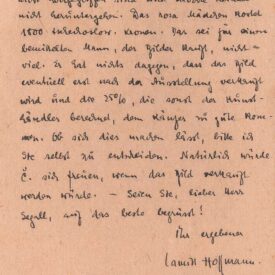 nicht heruntergehen. Das rosa Mädchen kostet
1800 tschechoslow. Kronen. Das sei für einen
bemittelten Mann, der Bilder kauft, nicht
viel. Er hat nichts dagegen, dass das Bild
eventuell erst nach der Ausstellung verkauft
wird und die 25%, die sonst der Kunst-
händler berechnet, dem Käufer zu gute kom-
men. Ob sich dies machen lässt, bitte ich
Sie selbst zu entscheiden. Natürlich würde
Č. sich freuen, wenn das Bild verkauft
werden würde. – Seien Sie, lieber Herr
Segall, auf das beste begrüsst!
Ihr ergebener
Camill Hoffmann.